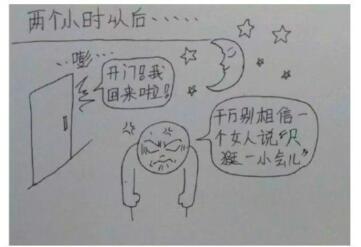 两个小时以后……
..嘭..
开门!!我
回来啦!!
千万别相信一
个女人说“只
逛一小会儿”